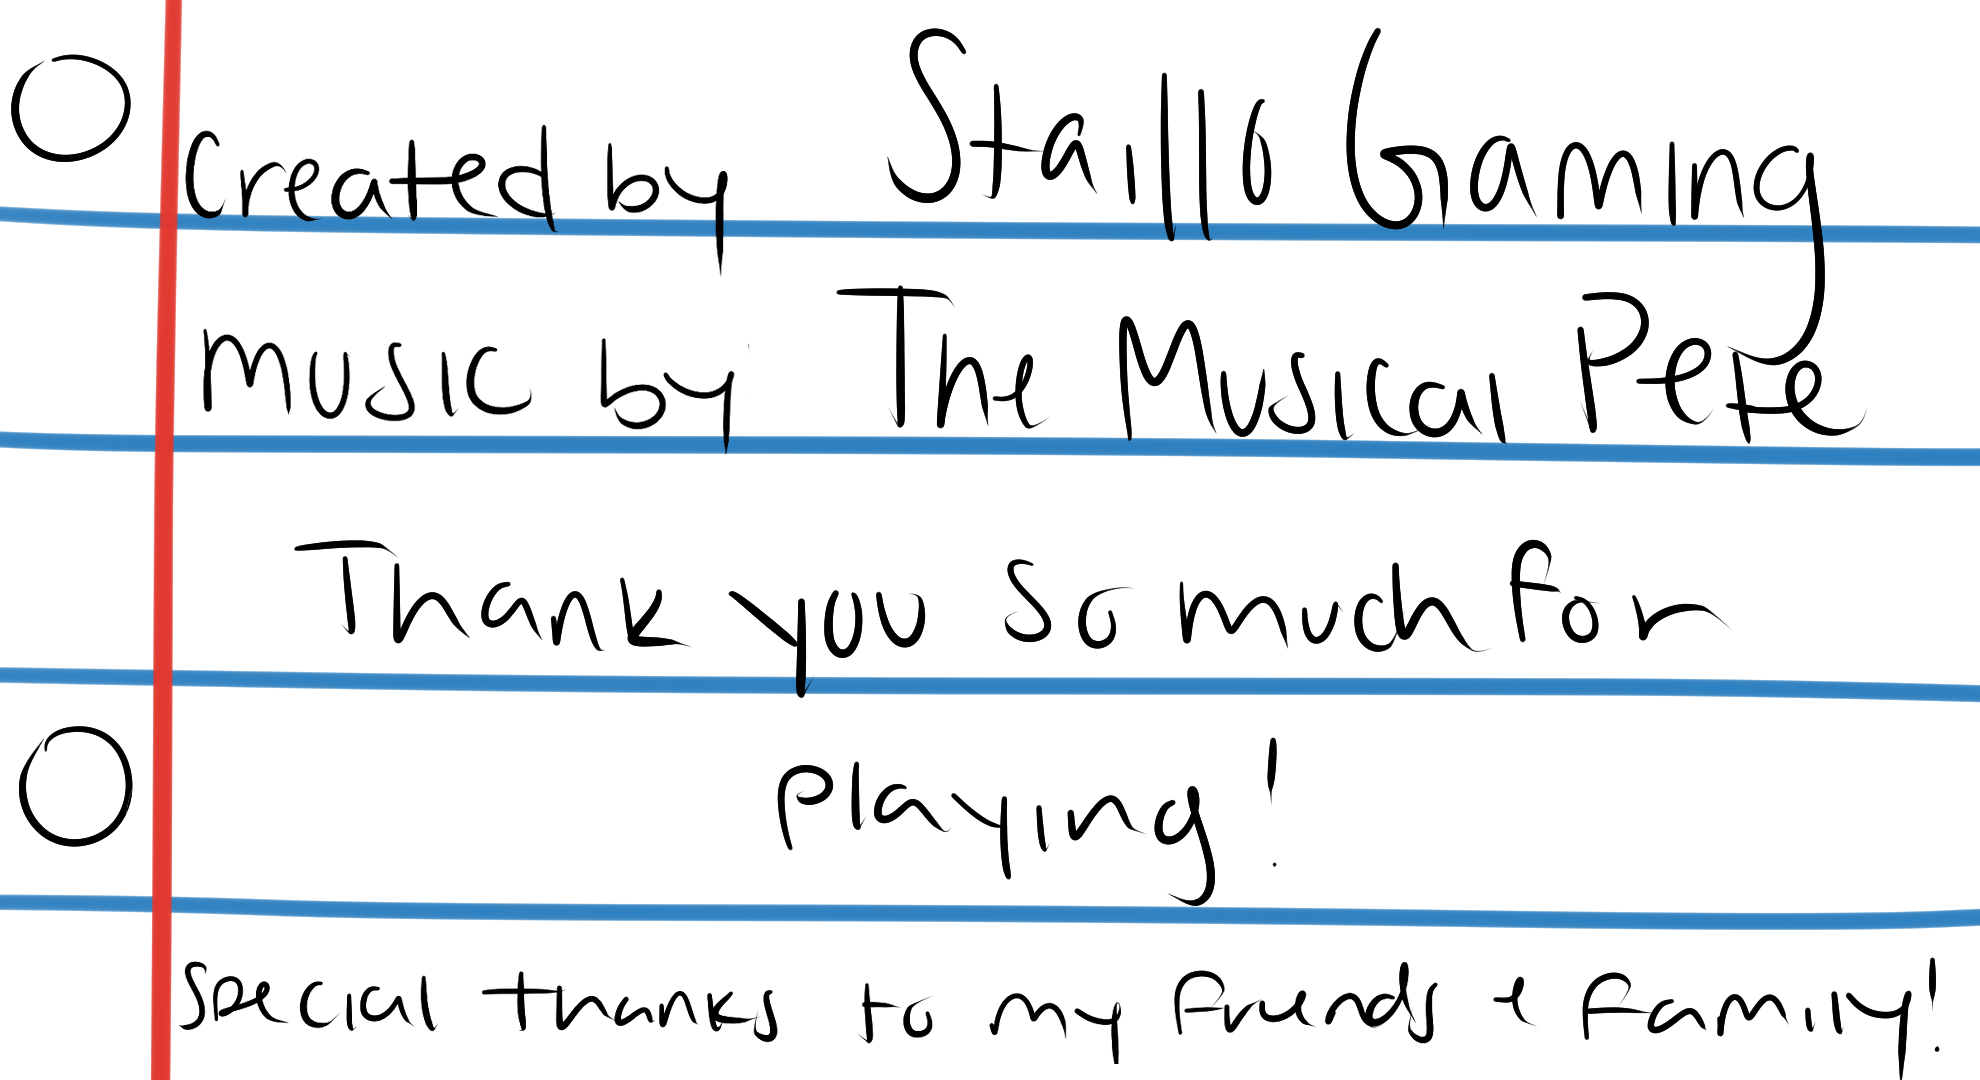 Created by Staillo Gaming
Music by The Musical Pete
Thank you so much for
playing!
Special thanks to my friends & family!